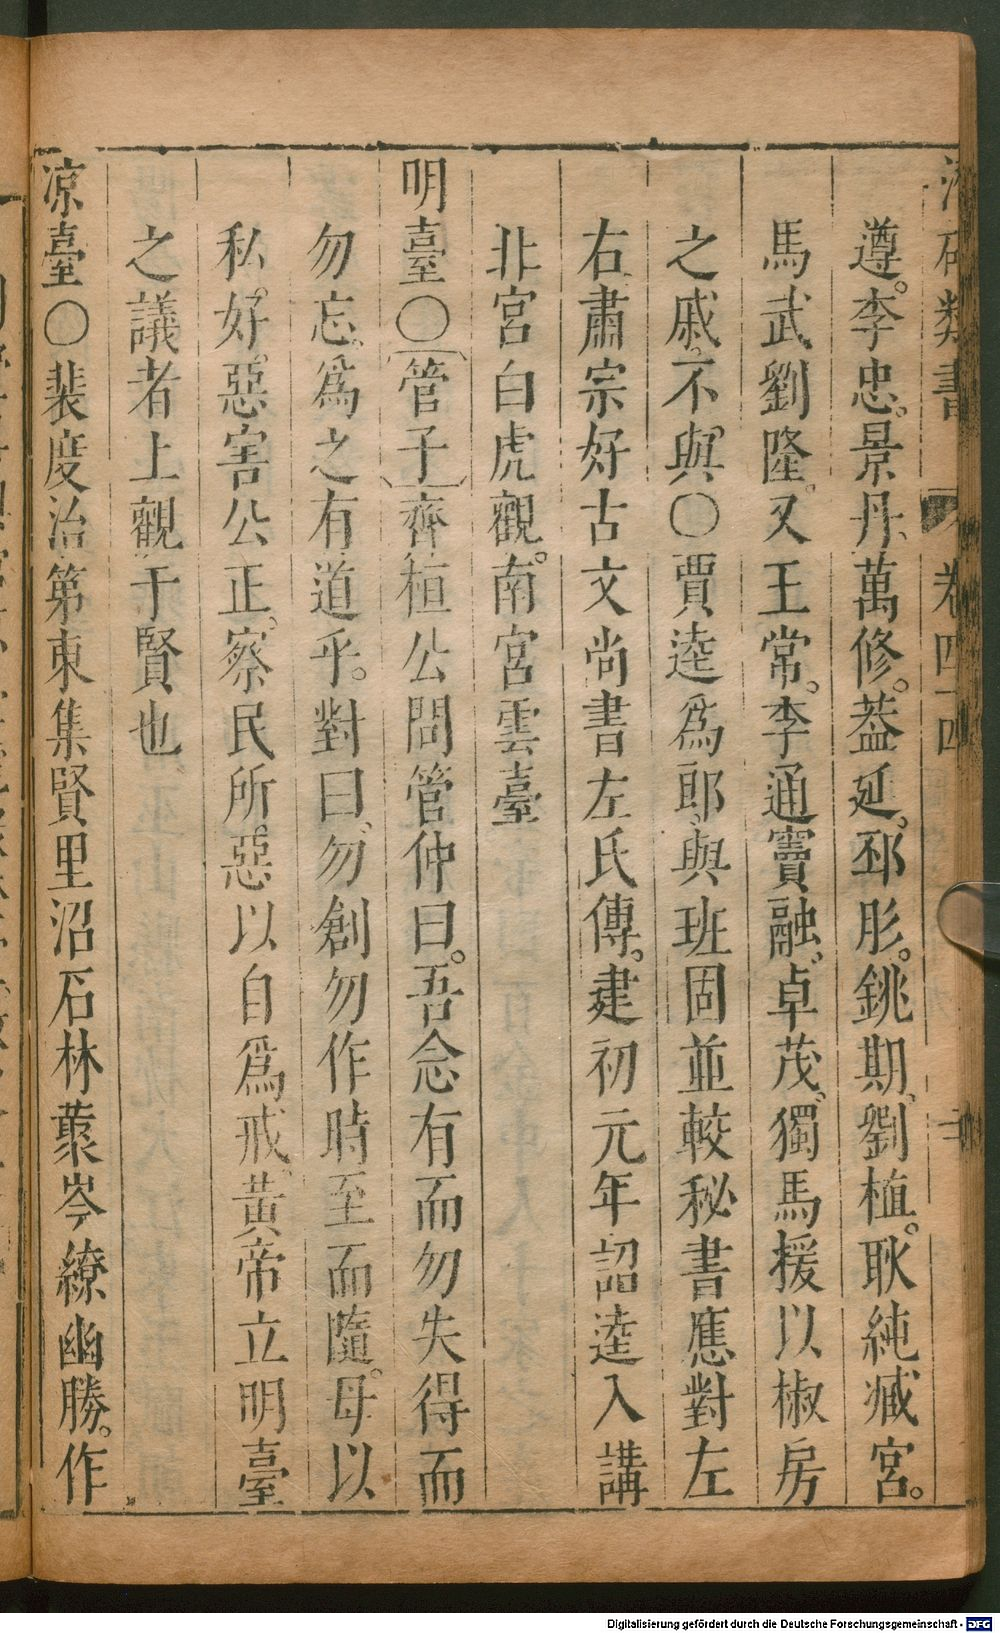 潜確類書　卷四十四　二
遵。李忠。景丹、萬修。葢延。邳彤。銚期、劉植。耿純臧宮。
馬武劉隆。又王常。李通竇融、卓茂、獨馬援以椒房
之戚、不與〇賈逵爲郎、與班固並較秘書應對左
右肅宗好古文尚書左氏傳。建初元年詔逵入講
非宮白虎觀。南宮雲臺
明臺〇管子齊桓公問管仲曰。吾念有而勿失得而
勿忘、爲之有道乎。對曰、勿創勿作時至而隨。毋以
私。好。惡害公正。察民所。惡以自爲戒、黃帝立明臺
之議者上觀于賢也
凉臺〇裴度治第東集賢里沼石林藂岑繚幽勝。作
Digitalisierung gefördert durch die Deutsche Forschungsgemeinschaft - DFG